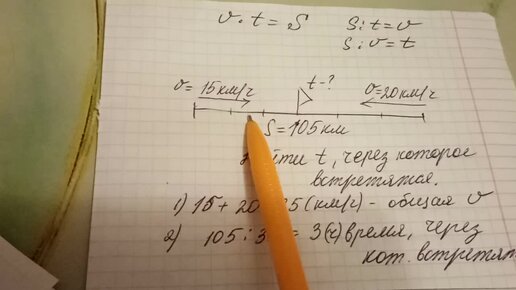 v · t = S S : t = v
S : v = t
v = 15 км/ч t - ? v = 20 км/ч
S = 105 км
t, через которое
встретятся.
1) 15 + 20 35 (км/ч) - общая v
2) 105 : 3 = 3 (ч) время, через
кот. встретят